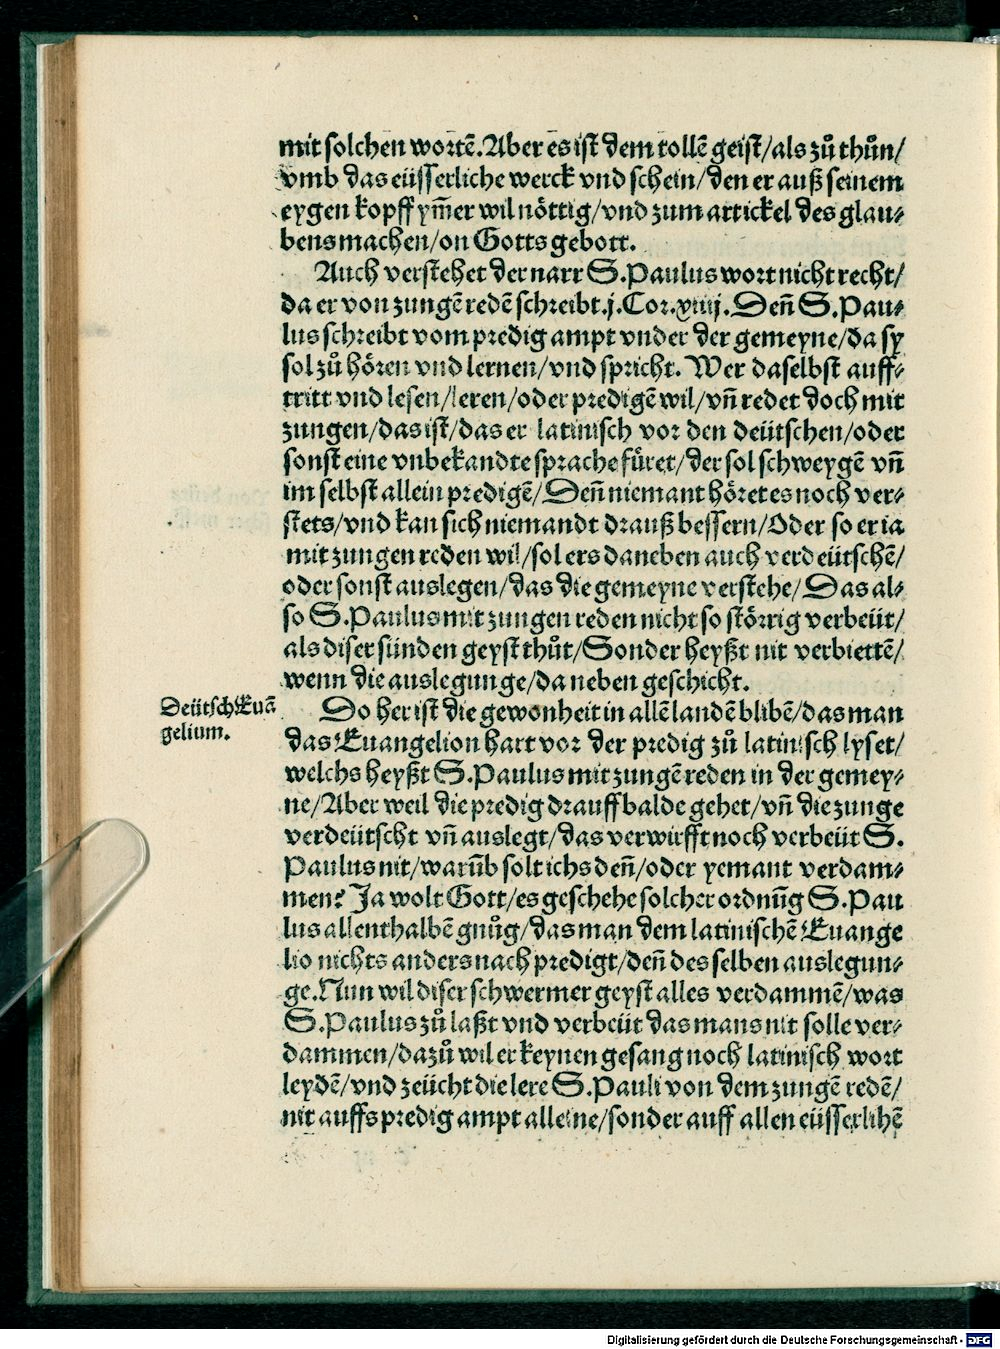 mit solchen wortē. Aber es ist dem tollē geist/als zů thůn/
vmb das eüsserliche werck vnd schein/den er auß seinem
eygen kopff ym̄er wil nöttig/vnd zum artickel des glau⸗
bens machen/on Gotts gebott.
Auch verstehet der narr S. Paulus wort nicht recht/
da er von zungē redē schreibt. j. Cor. xiiij. Deñ S. Pau⸗
lus schreibt vom predig ampt vnder der gemeyne/da sy
sol zů hören vnd lernen/vnd spricht. Wer daselbst auff⸗
tritt vnd lesen/leren/oder predigē wil/vñ redet doch mit
zungen/das ist/das er latinisch vor den deütschen/oder
sonst eine vnbekandte sprache füret/der sol schweygē vñ
im selbst allein predigē/Deñ niemant höret es noch ver⸗
stets/vnd kan sich niemandt drauß bessern/Oder so er ia
mit zungen reden wil/sol ers daneben auch verdeütschē/
oder sonst auslegen/das die gemeyne verstehe/Das al⸗
so S. Paulus mit zungen reden nicht so störrig verbeüt/
als diser sünden geyst thůt/Sonder heyßt nit verbiettē/
wenn die auslegunge/da neben geschicht.
Deütsch Euā
gelium.
Do her ist die gewonheit in allē landē blibē/das man
das Euangelion hart vor der predig zů latinisch lyset/
welchs heyßt S. Paulus mit zungē reden in der gemey⸗
ne/Aber weil die predig drauff balde gehet/vñ die zunge
verdeütscht vñ auslegt/das verwirfft noch verbeüt S.
Paulus nit/warūb solt ichs deñ/oder yemant verdam⸗
men? Ja wolt Gott/es geschehe solcher ordnūg S. Pau
lus allenthalbē gnůg/das man dem latinischē Euange
lio nichts anders nach predigt/deñ des selben auslegun⸗
ge. Nun wil diser schwermer geyst alles verdammē/was
S. Paulus zů laßt vnd verbeüt das mans nit solle ver⸗
dammen/dazů wil er keynen gesang noch latinisch wort
leydē/vnd zeücht die lere S. Pauli von dem zungē redē/
nit auffs predig ampt alleine/sonder auff allen eüsserlihē
Digitalisierung gefördert durch die Deutsche Forschungsgemeinschaft - DFG